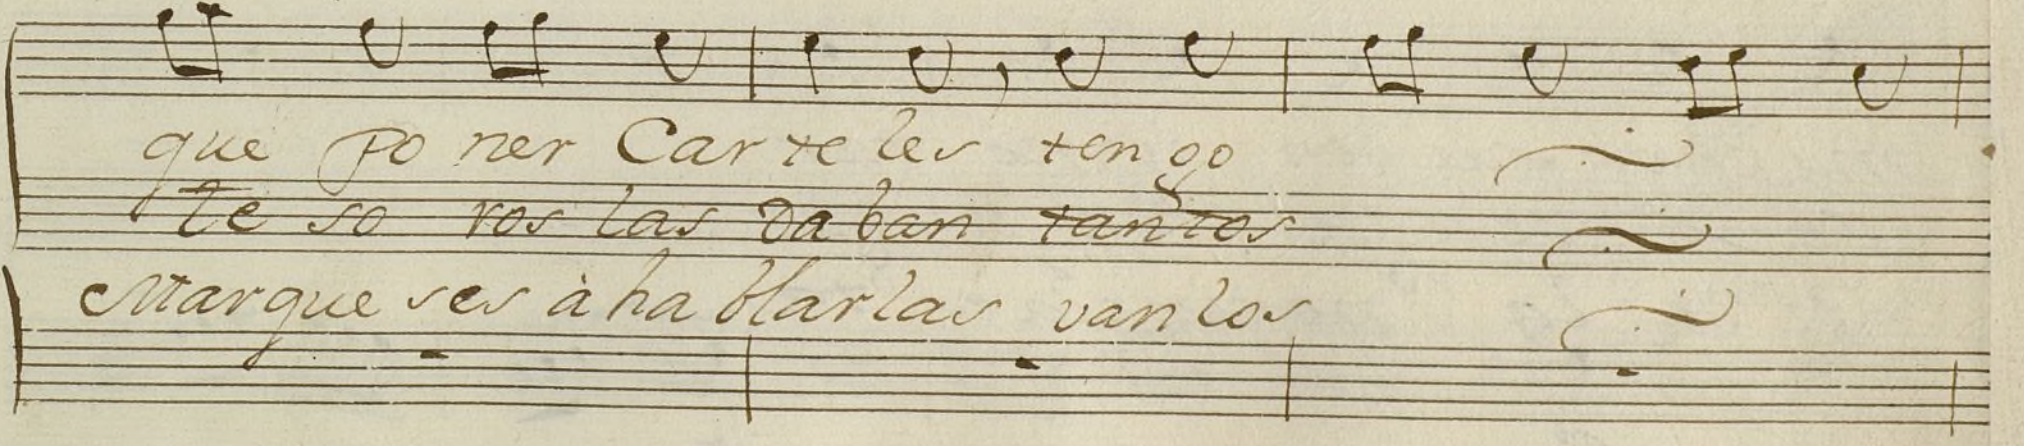 que po ner Car te les ten go
te so ros las Da ban tantos
Marque ses à ha blar las van los